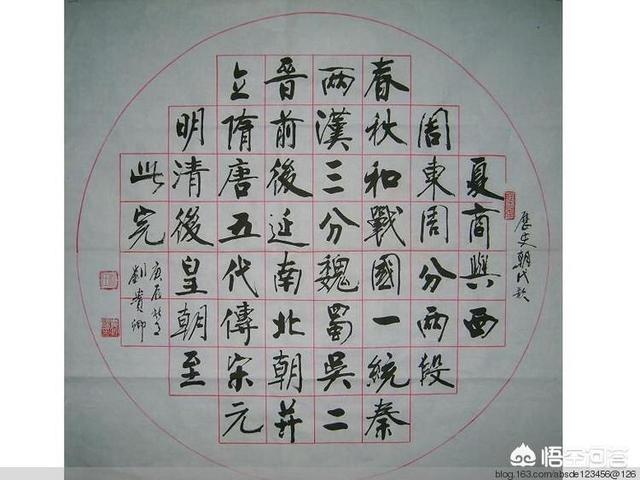 歷史朝代歌
夏商與西
周東周分兩段
春秋和戰國一統秦
兩漢三分魏蜀吳二
晉前後延南北朝并
立隋唐五代傳宋元
明清後皇朝至
此完
庚辰
劉貴卿
悟空问答
blog.163.com/absde123456@126